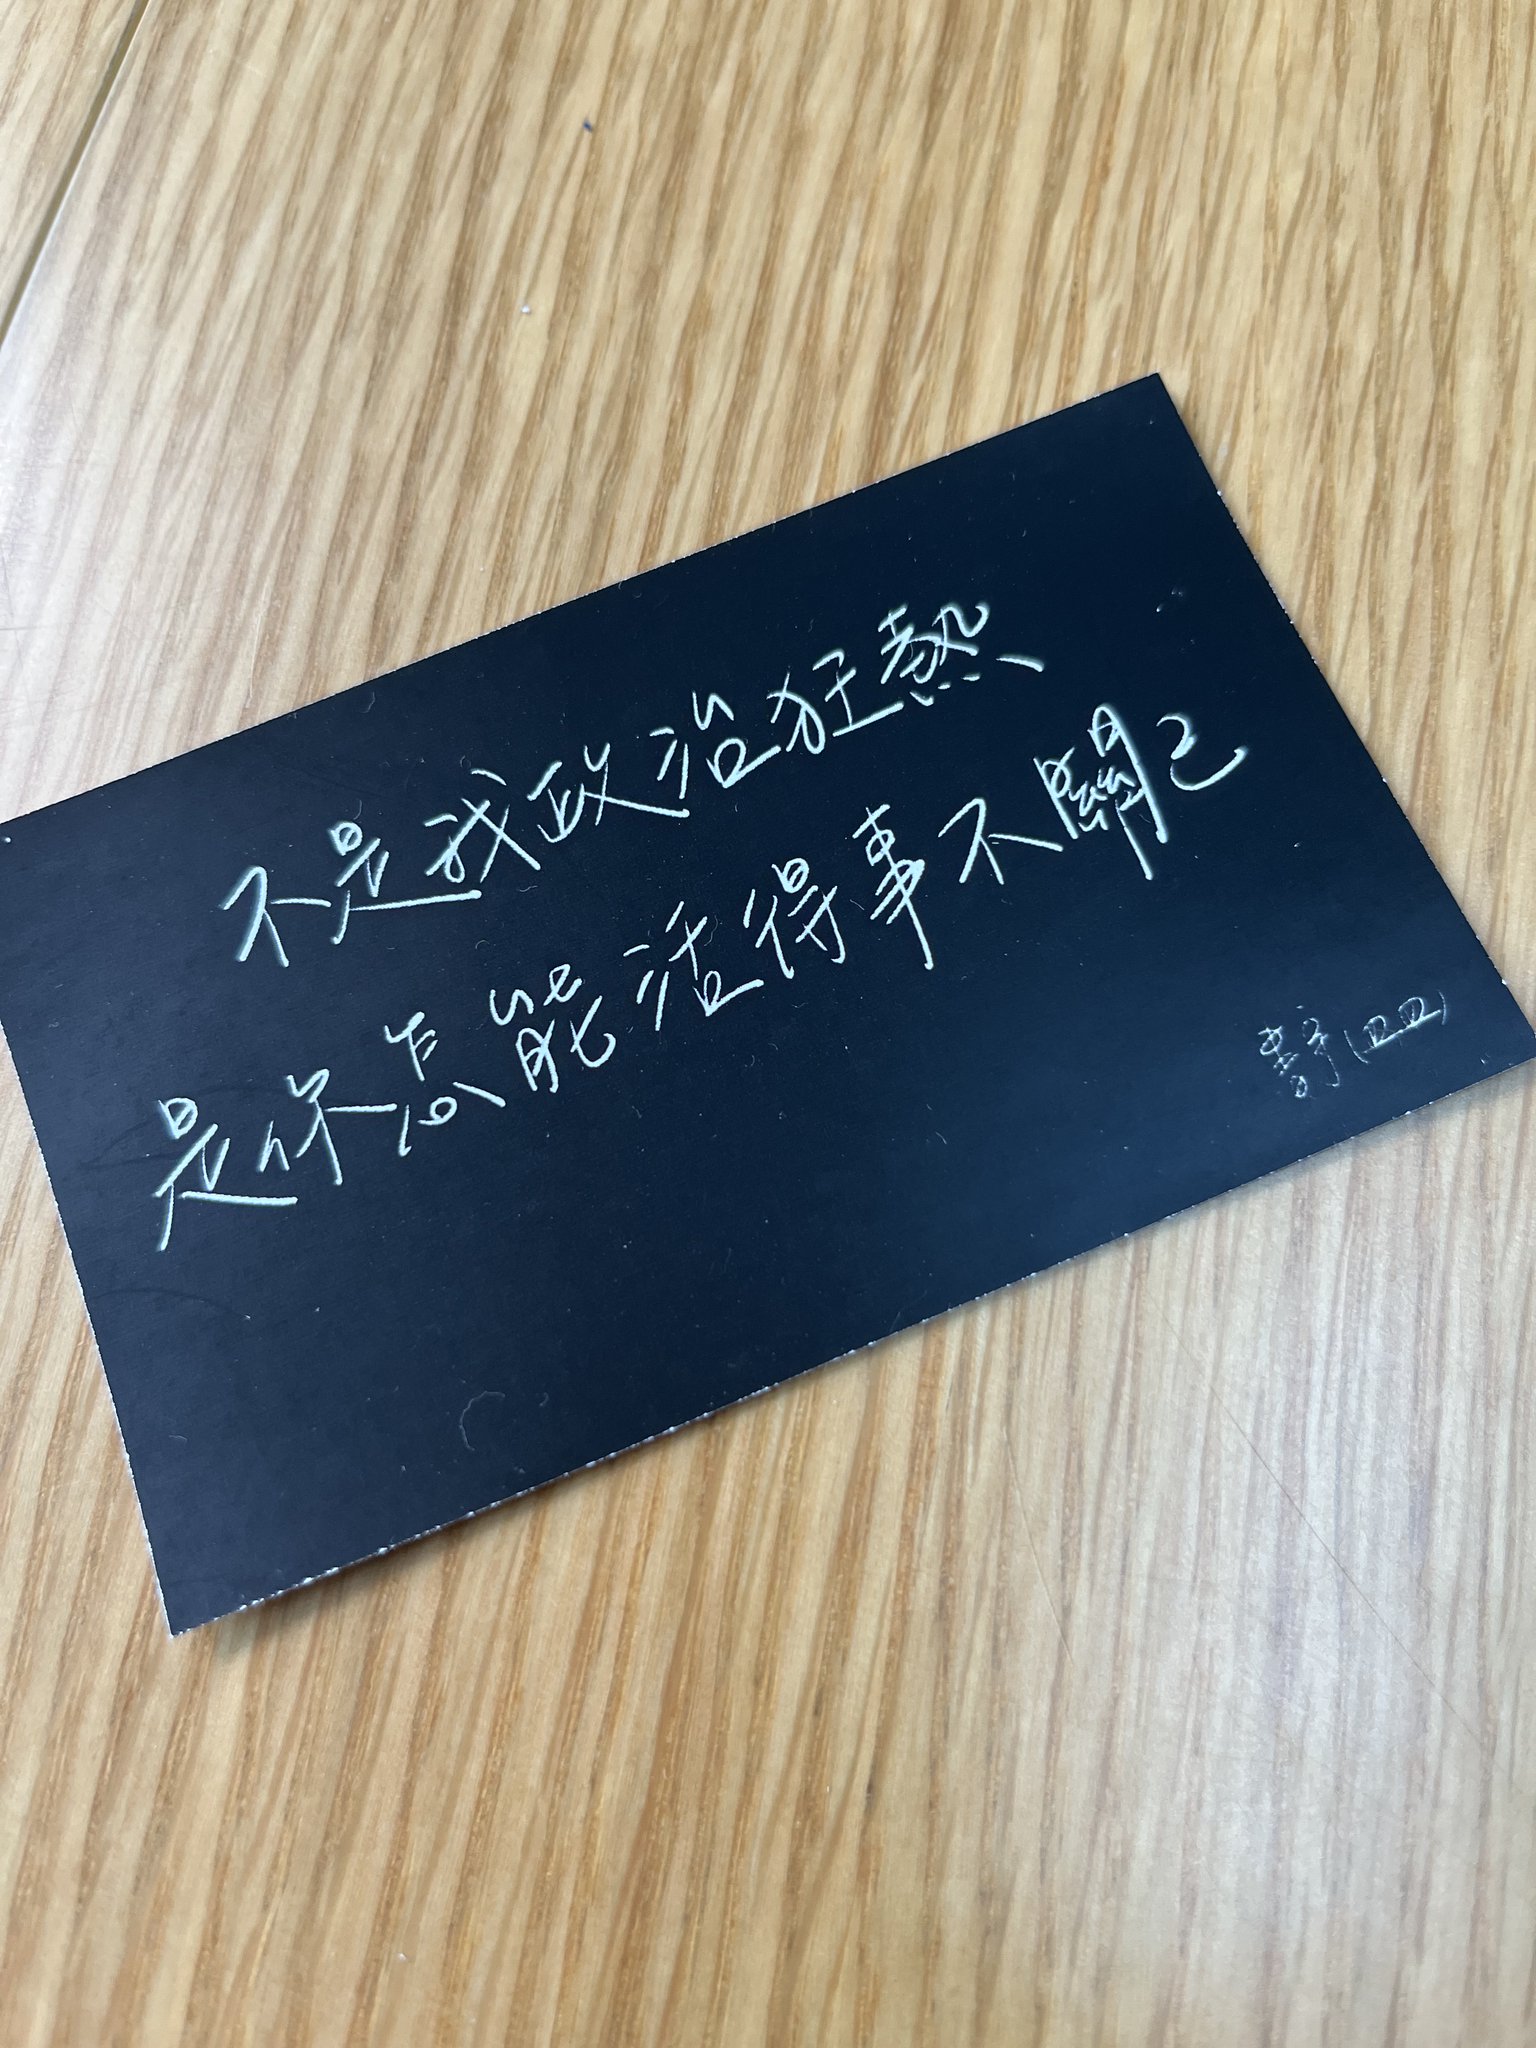 不是我政治狂熱
是你怎能活得事不關己